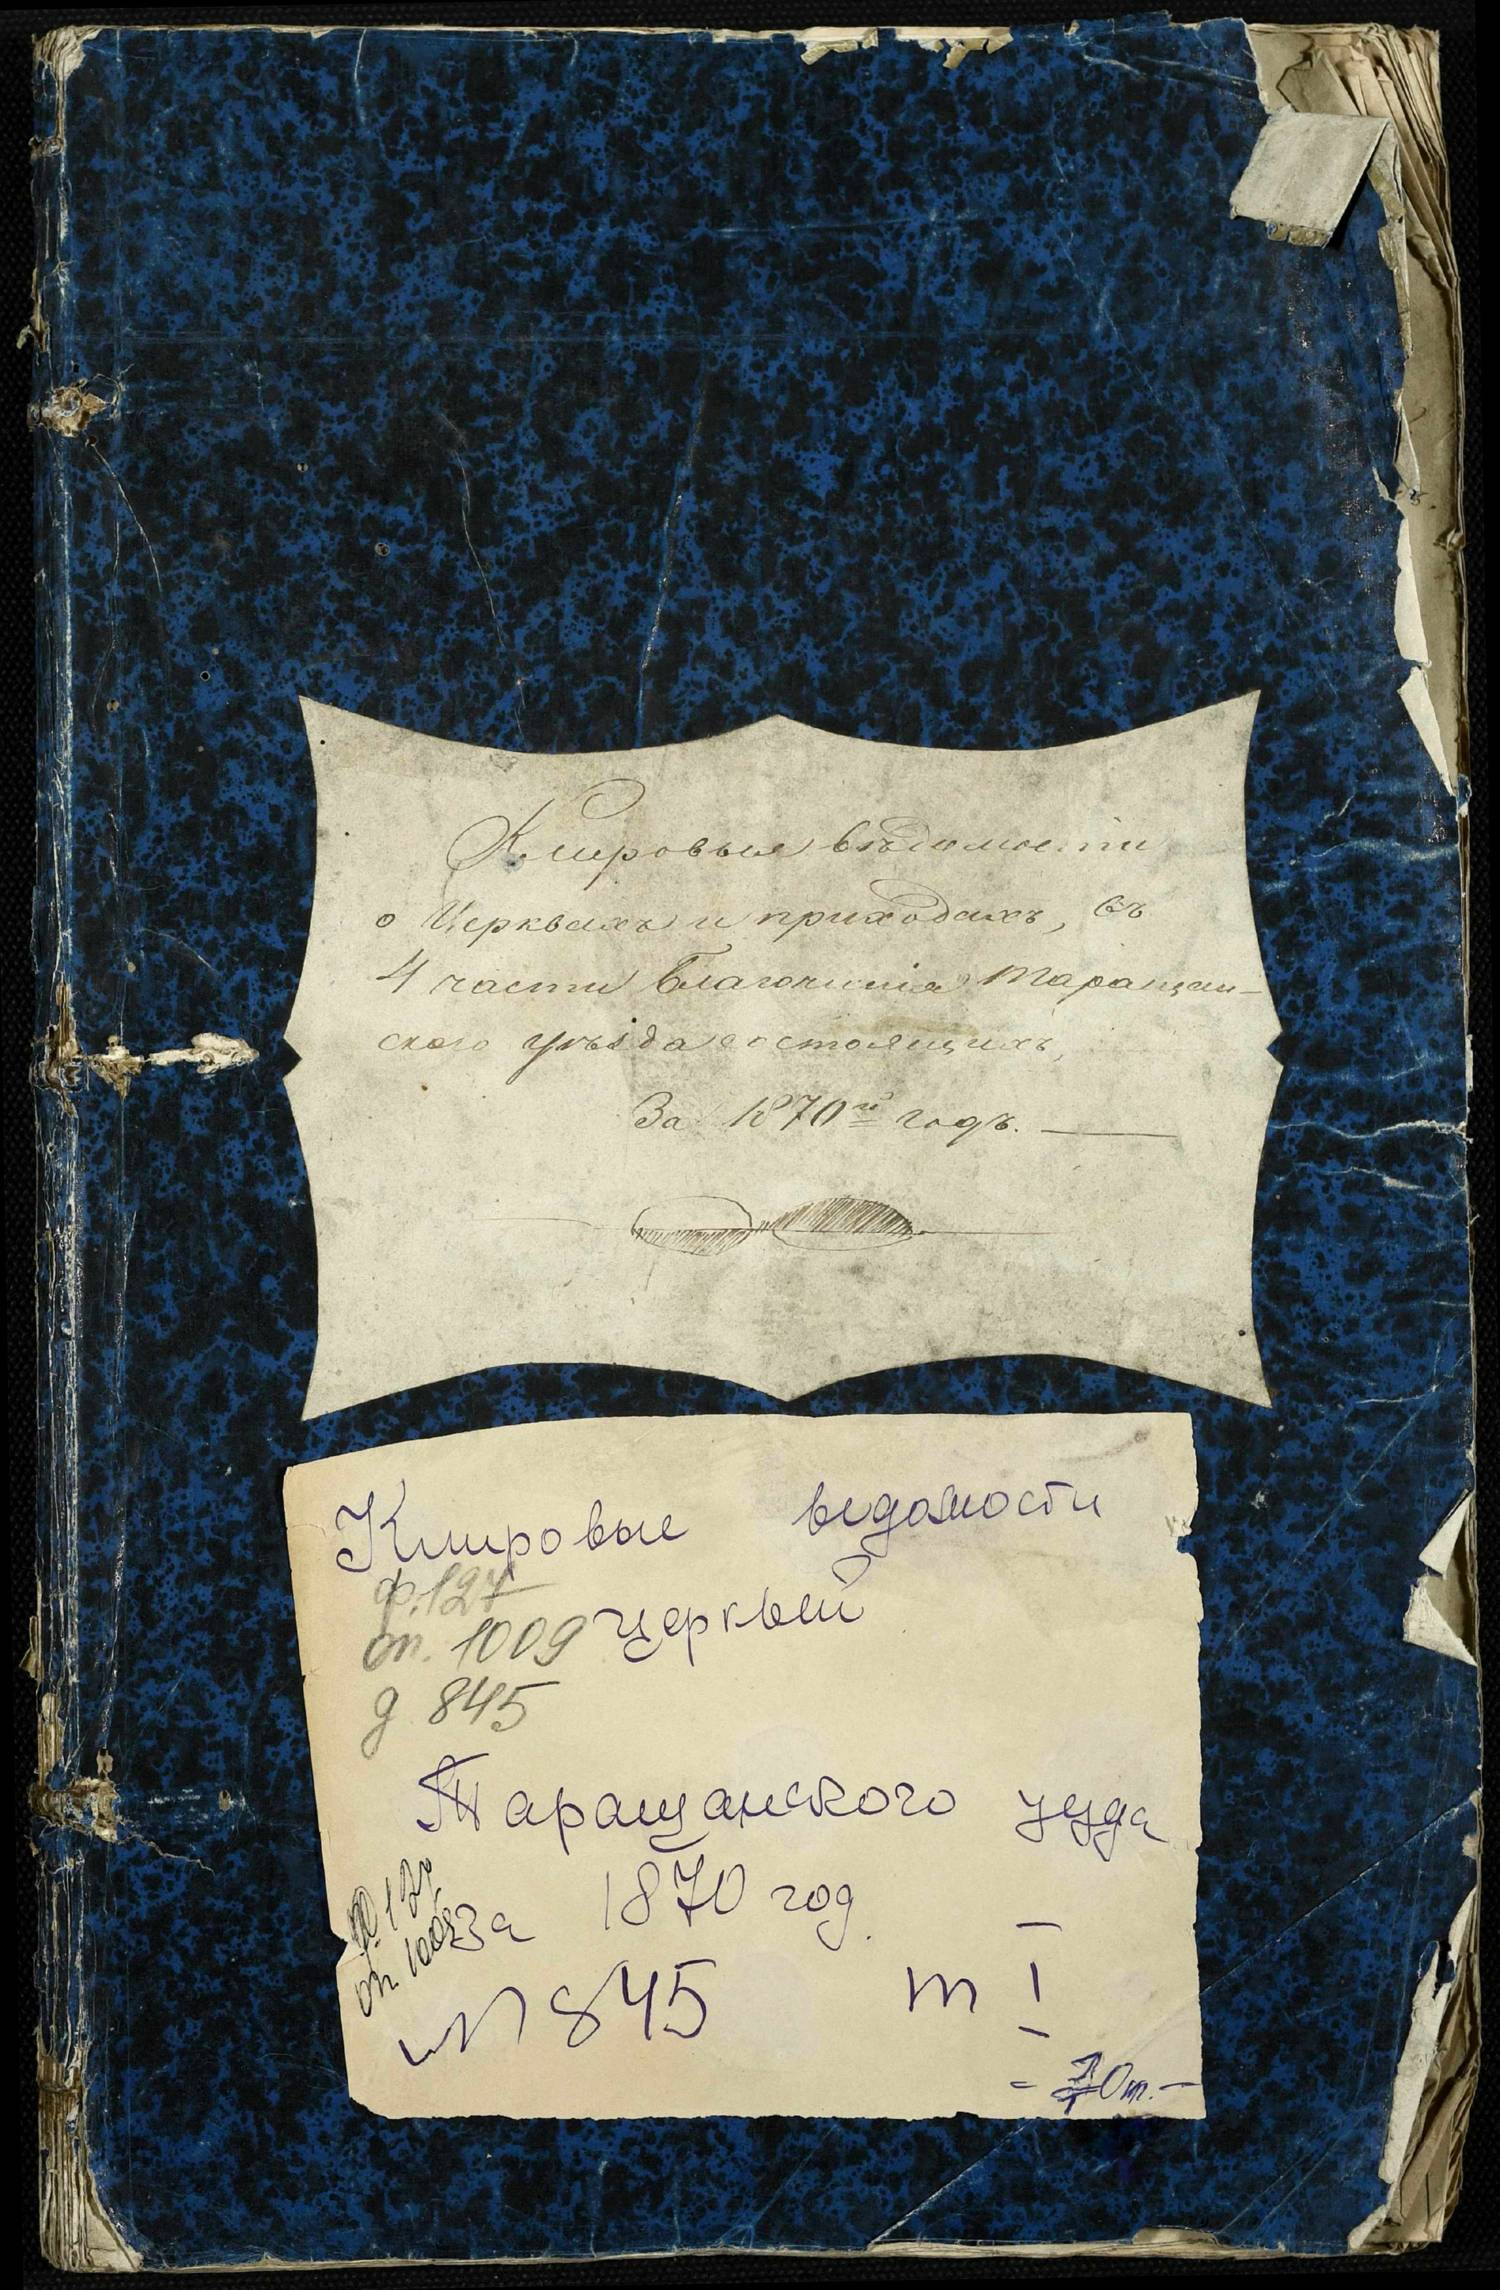 Клировыя вѣдомости
о Церквахъ и приходахъ, въ
4 части Благочинія Таращан-
ского уѣзда состоящихъ,
За 1870й годъ.
Клировые ведомости
ф. 127
оп. 1009 церквей
д 845
Таращанского уезда
за 1870 год
ф 127
оп 1009
№ 845 т I